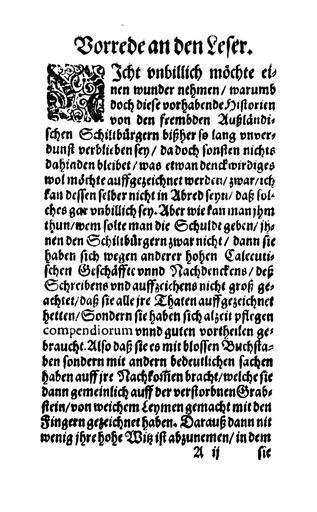 Vorrede an den Leser.
NIcht vnbillich möchte ei-
nen wunder nehmen / warumb
doch diese vorhabende Historien
von den frembden Außländi-
schen Schiltbürgern bißher so lang vnver-
dunst verblieben sey / da doch sonsten nichts
dahinden bleibet / was etwan denckwirdiges
wol möchte auffgezeichnet werden / zwar / ich
kan dessen selber nicht in Abred seyn / daß sol-
ches gar vnbillich sey. Aber wie kan man jhm
thun / wem solte man die Schuldt geben / jh-
nen den Schiltbürgern zwar nicht / dann sie
haben sich wegen anderer hohen Calecuti-
schen Geschäffte vnnd Nachdenckens / deß
Schreibens vnd auffzeichens nicht groß ge-
achtet / daß sie alle jre Thaten auffgezeichnet
hetten / Sondern sie haben sich alzeit pflegen
compendiorum vnnd guten vortheilen ge-
braucht. Also daß sie es mit blossen Buchsta-
ben sondern mit andern bedeutlichen sachen
haben auff jre Nachkommen bracht / welche sie
dann gemeinlich auff der verstorbnen Grab-
stein / von weichem Leymen gemacht mit den
Fingern gezeichnet haben. Darauß dann nit
wenig jhre hohe Witz ist abzunemen / in dem
A ij sie